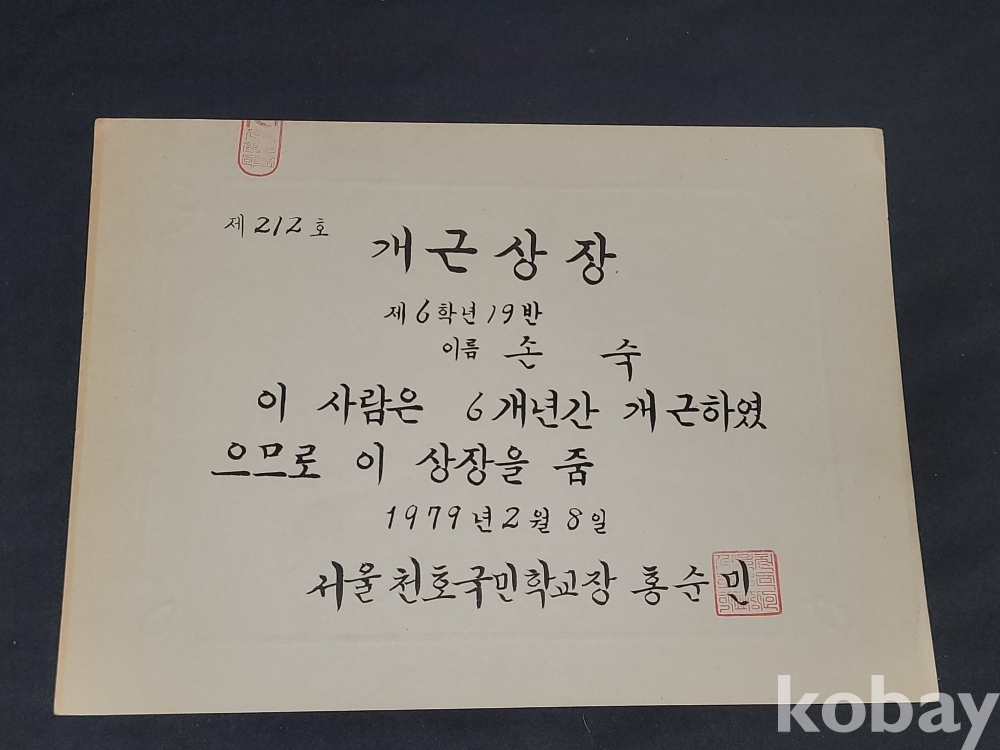 제212호
개근상장
제6학년19반
이름 손 숙
이 사람은 6개년간 개근하였
으므로 이 상장을 줌
1979년2월8일
서울천호국민학교장 홍순민
kobay